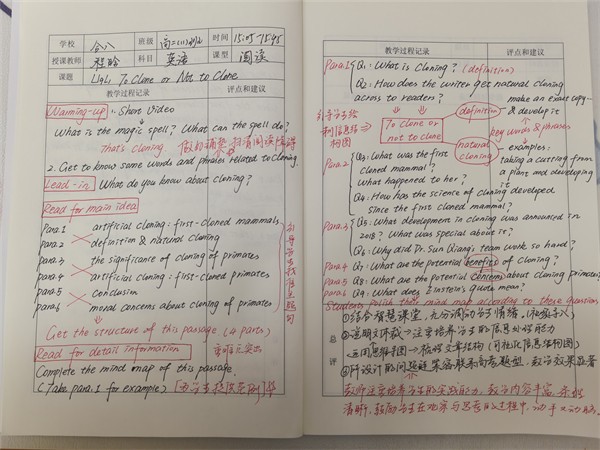 学校 合八 班级 高二(1)班 时间 15:05-15:45
授课教师 程晗 科目 英语 课型 阅读
课题 U4L1 To Clone or Not to Clone
教学过程记录 评点和建议
Warming-up: 1. Short Video
What is the magic spell? What can the spell do?
That's cloning
2. Get to know some words and phrases related to cloning
Lead-in What do you know about cloning?
Read for main idea
Para.1 artificial cloning: first-cloned mammals
para.2 definition & natural cloning
para.3 the significance of cloning of primates
para.4 artificial cloning: first-cloned primates
para.5 conclusion
para.6 moral concerns about cloning of primates
Get the structure of this passage (4 parts)
Read for detail information
Complete the mind map of this passage.
(Take para.1 for example)
教学过程记录 评点和建议
Para.1 Q1: What is Cloning? (definition)
Q2: How does the writer get natural cloning
across to readers?
definition
make an exact copy
& develop it
key words & phrases
To clone or
not to clone
natural
cloning
examples:
taking a cutting from
a plant and developing
it
Para.2 Q3: What was the first
cloned mammal?
What happened to her?
Q4: How has the science of cloning developed
since the first cloned mammal?
Para.3 Q5: What development in cloning was announced in
2018? What was special about it?
Q6: Why did Dr. Sun Qiang's team work so hard?
Para.4 Q7: What are the potential benefits of cloning?
Para.5 Q8: What are the potential concerns about cloning primates
Para.6 Q9: What does Einstein's quote mean?
Students polish their mind map according to these questions
总评
①结合智慧课堂,充分调动学生情绪
②说明文体裁→注重培养学生的信息处理能力
运用思维导图→梳理文章结构(可视化信息结构图)
教师注重培养学生的实践能力,教学内容丰富,条理
清晰,鼓励学生在观察与思考的过程中,动手又动脑。